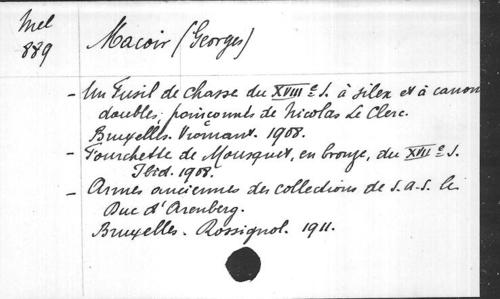 Mel
889
Macoir (Georges)
- Un Fusil de chasse du XVIIIe s. à silex et à canons
doubles, poinconnés de Nicolas Le Clerc.
Bruxelles. Vromant. 1908.
- Fourchette de Mousquet, en bronze, du XVIIe s.
Ibid. 1908.
- Armes anciennes des collections de S.A.S. le
Duc d'Arenberg.
Bruxelles. Rossignol. 1911.